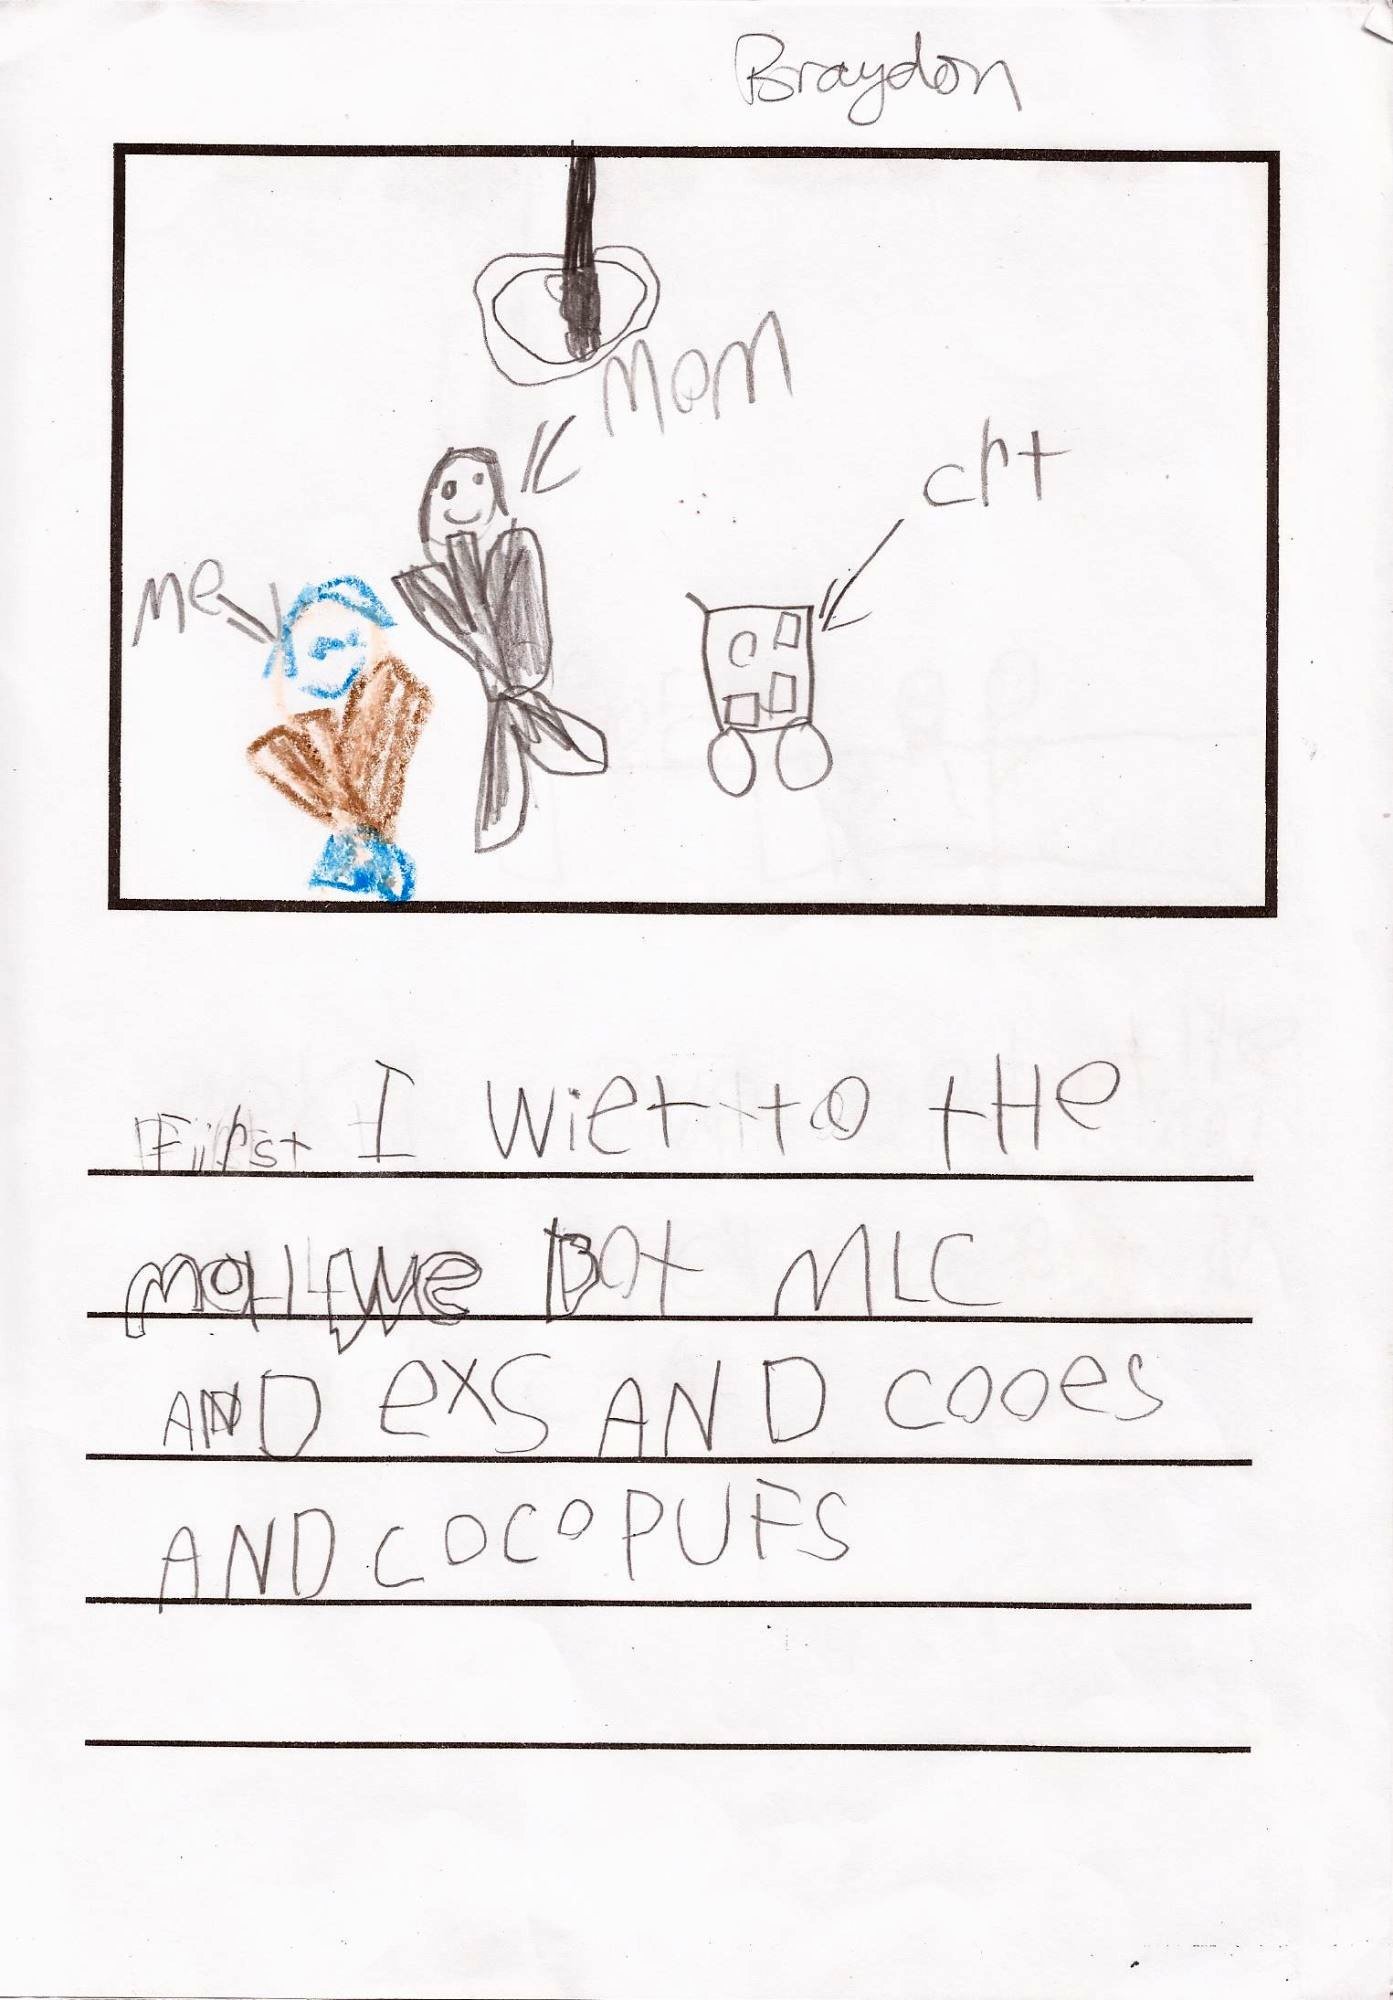 Braydon
Mom
crt
me
First I wiet to the
We Bot MLC
AND exS AND cooes
AND cocoPUFS